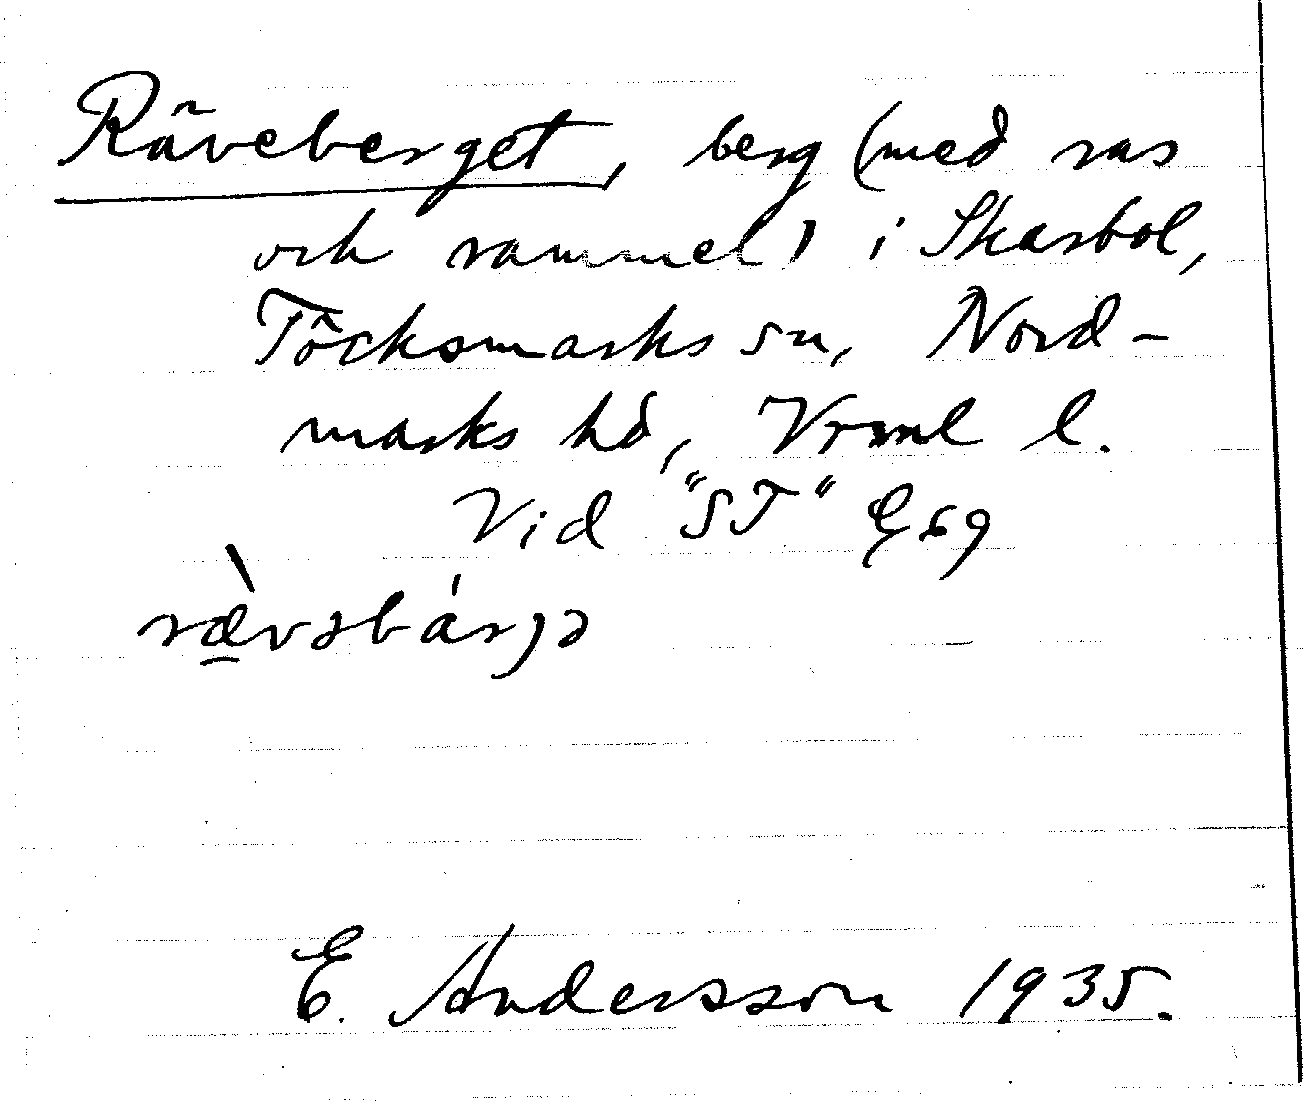 Räveberget, berg (med ras
och rammel) i Skarbol,
Töcksmarks sn, Nord-
marks hd, Vrml l.
Vid "ST" G69
ræ̀vəbárjə
E. Andersson 1935.